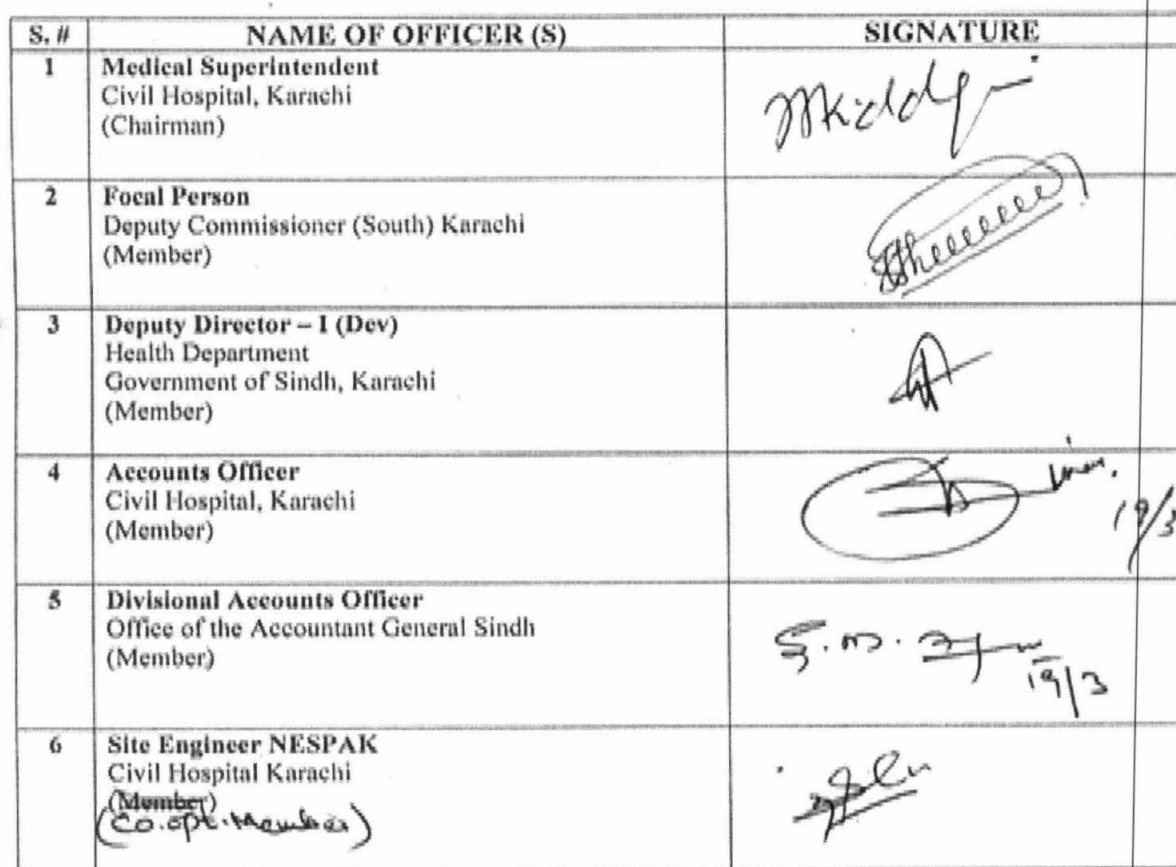 S. # NAME OF OFFICER (S) SIGNATURE
1 Medical Superintendent
Civil Hospital, Karachi
(Chairman)
2 Focal Person
Deputy Commissioner (South) Karachi
(Member)
3 Deputy Director – I (Dev)
Health Department
Government of Sindh, Karachi
(Member)
4 Accounts Officer
Civil Hospital, Karachi
(Member)
19/3
5 Divisional Accounts Officer
Office of the Accountant General Sindh
(Member)
S. M.
19/3
6 Site Engineer NESPAK
Civil Hospital Karachi
(Member)
(Co.opt.Member)